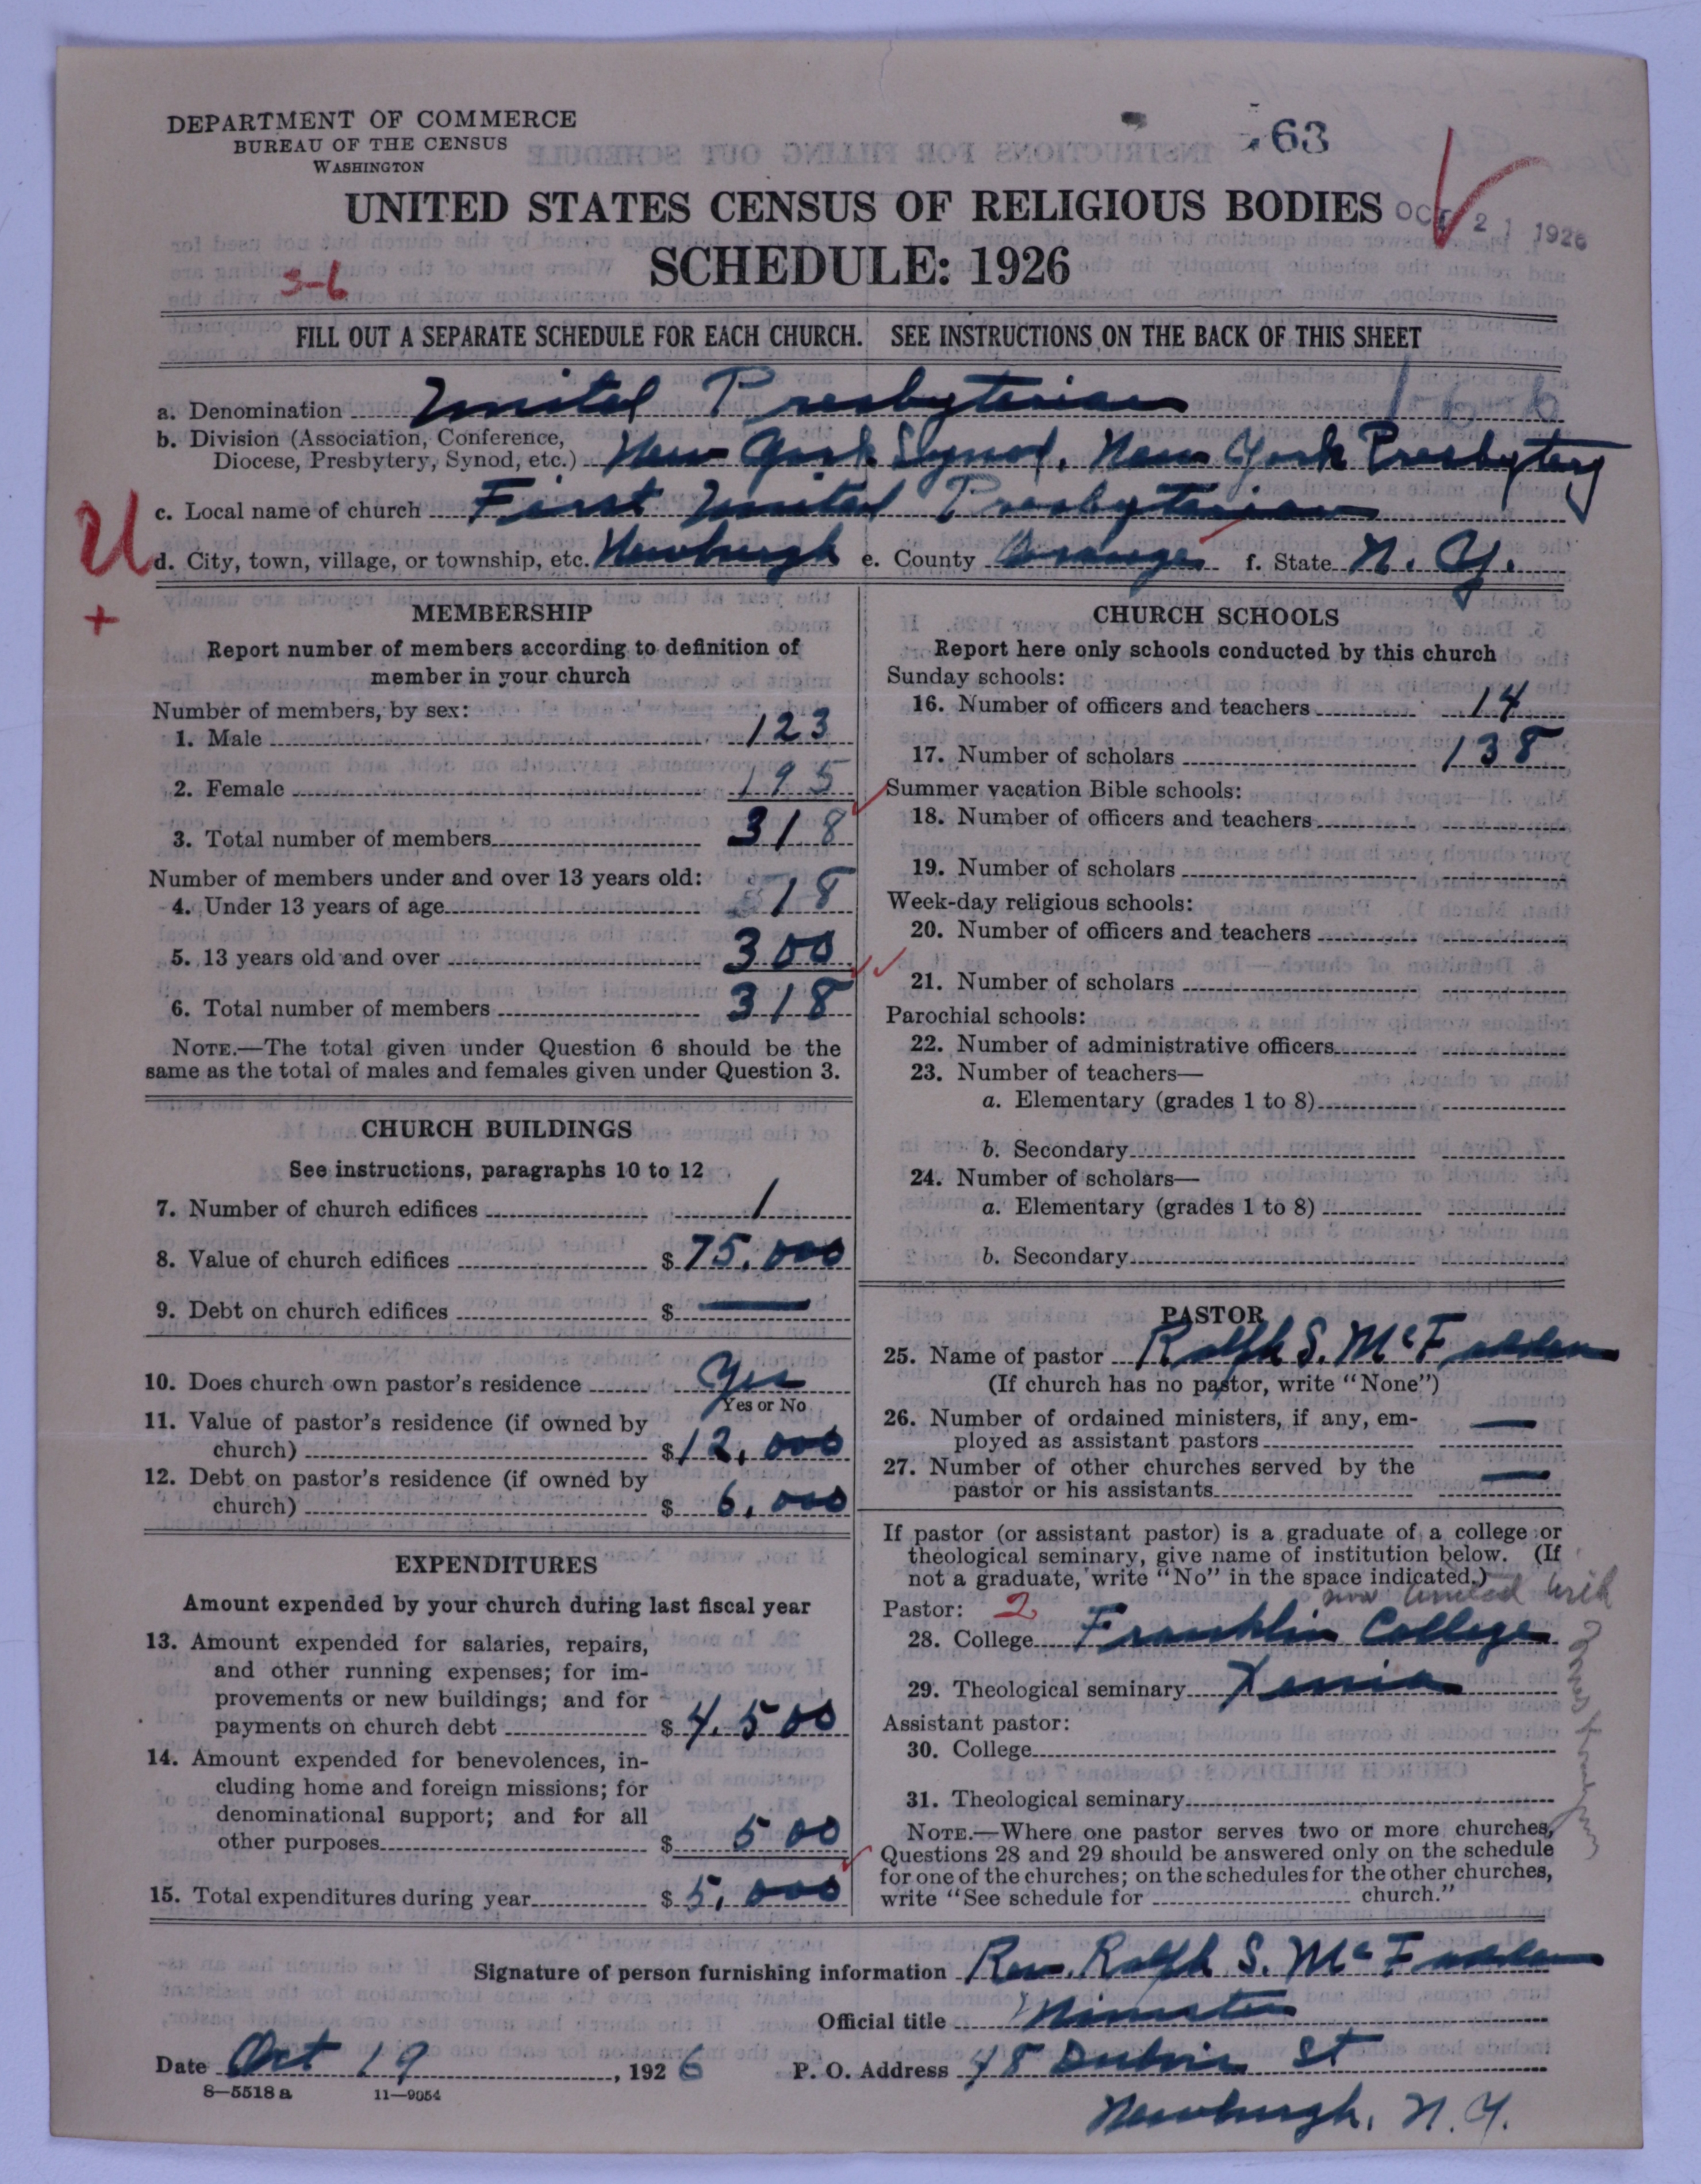 DEPARTMENT OF COMMERCE
BUREAU OF THE CENSUS
WASHINGTON
63
UNITED STATES CENSUS OF RELIGIOUS BODIES
OCT 21 1926
SCHEDULE: 1926
3-6
FILL OUT A SEPARATE SCHEDULE FOR EACH CHURCH. SEE INSTRUCTIONS ON THE BACK OF THIS SHEET
1-6 6
a. Denomination United Presbyterian
b. Division (Association, Conference,
Diocese, Presbytery, Synod, etc.) New York Synod, New York Presbytery
c. Local name of church First United Presbyterian
U
d. City, town, village, or township, etc. Newburgh e. County Orange f. State N. Y.
+
MEMBERSHIP
Report number of members according to definition of
member in your church
Number of members, by sex:
1. Male 123
2. Female 195
3. Total number of members 318
Number of members under and over 13 years old:
4. Under 13 years of age 18
5. 13 years old and over 300
6. Total number of members 318
NOTE.—The total given under Question 6 should be the
same as the total of males and females given under Question 3.
CHURCH BUILDINGS
See instructions, paragraphs 10 to 12
7. Number of church edifices 1
8. Value of church edifices $75,000
9. Debt on church edifices $ —
10. Does church own pastor's residence Yes
Yes or No
11. Value of pastor's residence (if owned by
church) $12,000
12. Debt on pastor's residence (if owned by
church) $ 6,000
EXPENDITURES
Amount expended by your church during last fiscal year
13. Amount expended for salaries, repairs,
and other running expenses; for im-
provements or new buildings; and for
payments on church debt $4,500
14. Amount expended for benevolences, in-
cluding home and foreign missions; for
denominational support; and for all
other purposes $ 500
15. Total expenditures during year $5,000
CHURCH SCHOOLS
Report here only schools conducted by this church
Sunday schools:
16. Number of officers and teachers 14
17. Number of scholars 138
Summer vacation Bible schools:
18. Number of officers and teachers
19. Number of scholars
Week-day religious schools:
20. Number of officers and teachers
21. Number of scholars
Parochial schools:
22. Number of administrative officers
23. Number of teachers—
a. Elementary (grades 1 to 8)
b. Secondary
24. Number of scholars—
a. Elementary (grades 1 to 8)
b. Secondary
PASTOR
25. Name of pastor Ralph S. McFadden
(If church has no pastor, write "None")
26. Number of ordained ministers, if any, em-
ployed as assistant pastors —
27. Number of other churches served by the
pastor or his assistants —
If pastor (or assistant pastor) is a graduate of a college or
theological seminary, give name of institution below. (If
not a graduate, write "No" in the space indicated.)
now United with
Pastor: 2
28. College Franklin College
29. Theological seminary Xenia
Assistant pastor:
30. College
31. Theological seminary
NOTE.—Where one pastor serves two or more churches,
Questions 28 and 29 should be answered only on the schedule
for one of the churches; on the schedules for the other churches,
write "See schedule for church."
Signature of person furnishing information Rev. Ralph S. McFadden
Official title Minister
Date Oct 19, 1926 P. O. Address 48 Dubois St
8—5518a 11—9054
Newburgh, N. Y.